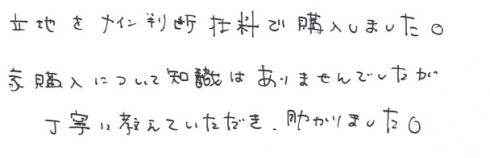 立地をメイン判断材料で購入しました。
家購入について知識はありませんでしたが
丁寧に教えていただき、助かりました。